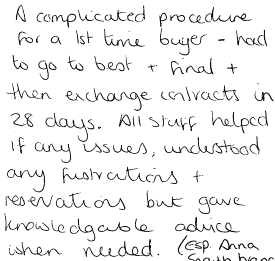 A complicated procedure
for a 1st time buyer - had
to go to best + final +
then exchange contracts in
28 days. All staff helped
if any issues, understood
any frustrations +
reservations but gave
knowledgable advice
when needed. (Esp. Anna